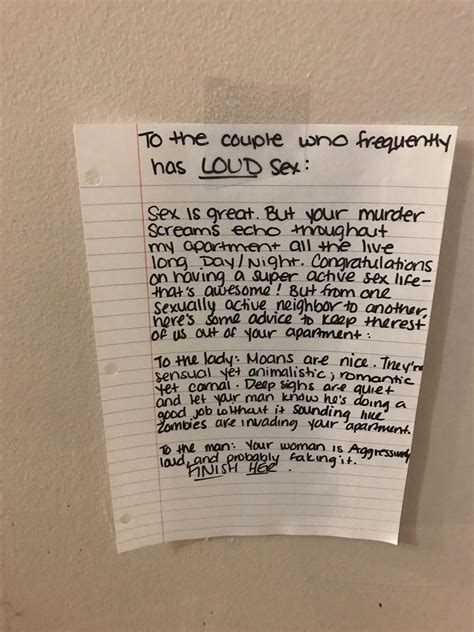 To the couple who frequently
has LOUD sex:
Sex is great. But your murder
screams echo throughout
my apartment all the live
long Day/Night. Congratulations
on having a super active sex life-
that's awesome! But from one
sexually active neighbor to another,
here's some advice to keep the rest
of us out of your apartment:
To the lady: Moans are nice. They're
sensual yet animalistic; romantic
yet carnal. Deep sighs are quiet
and let your man know he's doing a
good job without it sounding like
zombies are invading your apartment.
To the man: Your woman is Aggressively
loud, and probably faking it.
FINISH HER.